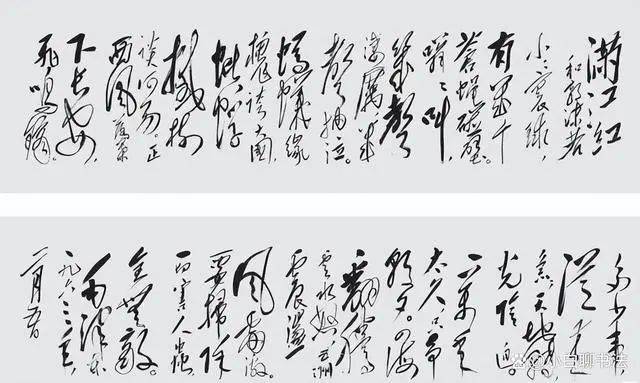 满江红
和郭沫若
小小寰球，
有幾个
苍蝇碰壁。
嗡嗡叫，
幾声
凄厉，幾
声抽泣。
蚂蚁缘
槐谈大国，
蚍蜉
撼树
谈何易。正
西风落葉
下长安，
飞鸣镝。
多少事，
从来
急。天地转，
光阴迫。
一万年
太久，只争
朝夕。四海
翻腾
云水怒，五洲
震荡
风雷激。
要扫除
一切害人虫
全无敌。
毛泽东
一九六三年
月五日
小白聊书法